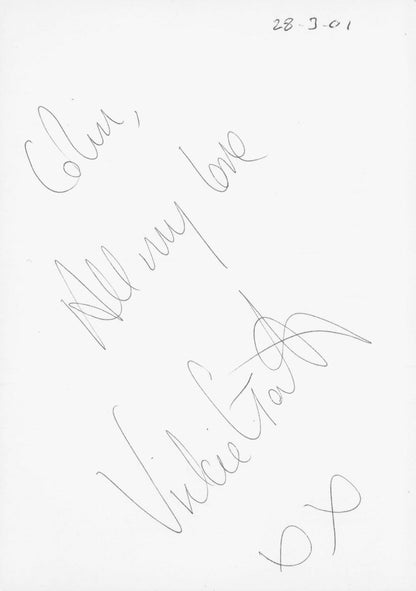 28-3-01
Colin,
All my love
Vickie
xx